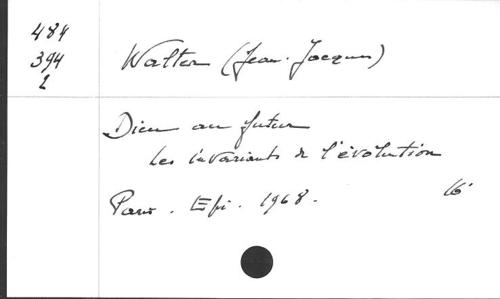 484
394
2
Walter (Jean-Jacques)
Dieu au futur
Les invariants de l'évolution
Paris. Epi. 1968. 16°